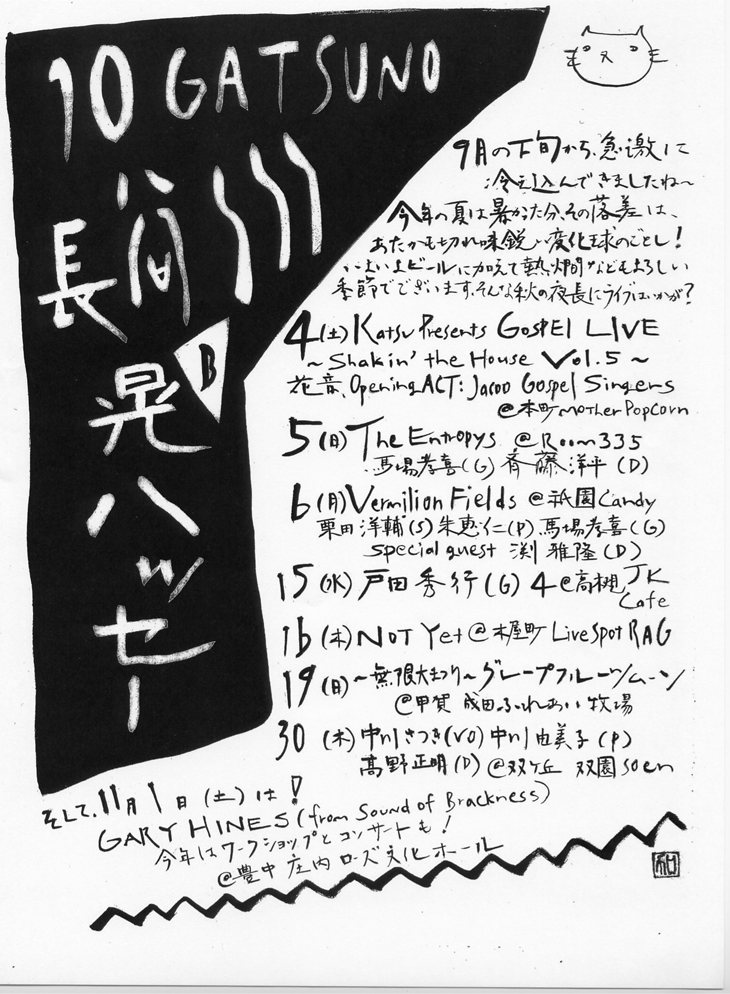 10 GATSUNO
長谷川
晃ハッセー
B
9月の下旬から、急激に
冷え込んできましたね〜
今年の夏は暑かった分、その落差は、
あたかも切れ味鋭い変化球のごとし！
いよいよビールに加えて熱燗などもよろしい
季節でございます。そんな秋の夜長にライブはいかが？
4(土) Katsu Presents GOSPEL LIVE
〜Shakin' the House Vol.5〜
花音、Opening ACT: Jacoo Gospel Singers
@本町 mother PopCorn
5(日) The Entropys @Room335
馬場孝喜(G) 斉藤洋平(D)
6(月) Vermilion Fields @祇園Candy
栗田洋輔(S) 朱恵仁(P) 馬場孝喜(G)
special guest 渕雅隆(D)
15(水) 戸田秀行(G) 4 @高槻JK
Cafe
16(木) NOT Yet @木屋町 LiveSpot RAG
19(日) 〜無限大まつり〜グレープフルーツムーン
@甲賀 成田ふれあい牧場
30(木) 中川さつき(VO) 中川由美子(P)
高野正明(D) @双ヶ丘 双園soen
そして、11月1日(土)は！
GARY HINES (from Sound of Brackness)
今年はワークショップとコンサートも！
@豊中 庄内ローズ文化ホール